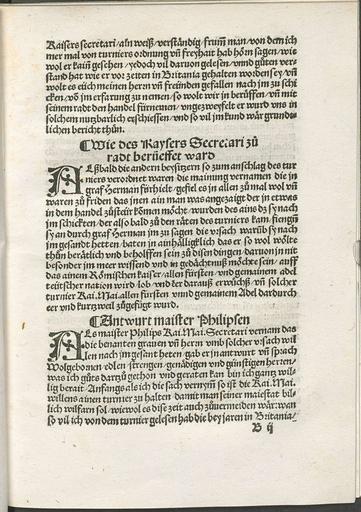 Kaisers secretari / ain weiß / verständig / frum̃ man / von dem ich
mer mal von turniers ordnung vñ freyhait hab hörn sagen / wie
wol er kain gesehen / yedoch vil daruon gelesen / vnnd gůten ver-
stand hat wie er vor zeiten in Britania gehalten worden sey / vñ
wolt es eüch meinen herrn vñ freünden gefallen nach jm zů schi
cken / vō jm erfarung zů nemen / so wolt wir in berůffen / vñ mit
seinem radt den handel fürnemen / vngezweyfelt er wurd vns in
solchem nutzbarlich erschiessen / vnd so vil jm kund wär grund-
lichen bericht thůn.
¶Wie des Kaysers Secretari zů
radt berůeffet ward
Alßbald die andern beysitzern so zum anschlag des tur
niers verordnet waren die mainung vernamen die jn
graf Herman fürhielt / gefiel es jn allen zů mal wol vñ
waren zů friden das jnen ain man was angezaigt der in etwas
in dem handel zů steür kõmen möcht / wurden des ains dz sy nach
jm schickten / der als bald zů den räten des turniers kam / fiengñ
sy an durch graf Herman jm zů sagen die vrsach warũb sy nach
jm gesandt hetten / baten in ainhälligklich das er so wol wölte
thůn berätlich vnd beholffen sein zů disen dingen / darion jn nit
besonder jm meer wissend vnd in gedächtnuß möcht sein / auff
das ainem Römischen kaiser / allen fürsten / vnd gemainem adel
teütscher nation wird / lob / vnd eer darauß erwüchß / vñ solcher
turnier Kai. Mai. allen fürsten vnnd gemainem Adel dardurch
eer vnd kurtzweil zůgefůgt wurd.
¶Antwurt maister Philipsen
Als maister Philips Kai. Mai. Secretari vernam das
die benanten grauen vñ herrn vmb solcher vrsach wil
len nach jm gesant heten / gab er jn antwurt vñ sprach
Wolgebornen / edlen / strengen / genädigen vnd günstigen herren /
was ich gůts darzů gethon vnd geraten kan bin ich gantz wil-
lig berait. Anfangs als ich die sach vernym̃ so ist die Kai. Mai.
willens ainen turnier zů halten / damit man seiner maiestat bil-
lich wilfarn sol / wiewol es dise zeit auch zů vermeiden wär: wan
so vil ich von dem turnier gelesen hab die bey jaren in Britania /
B ij